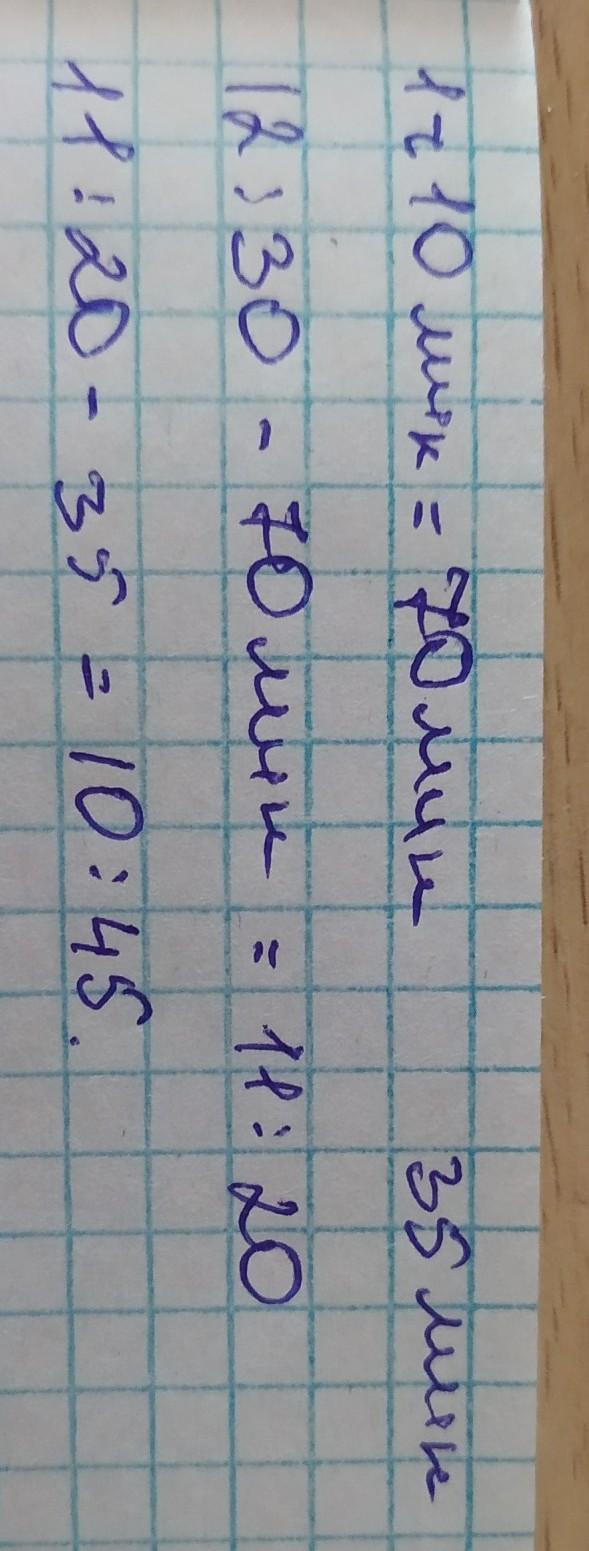 1ч 10 мин = 70 мин 35 мин
12:30 - 70 мин = 11:20
11:20 - 35 = 10:45.